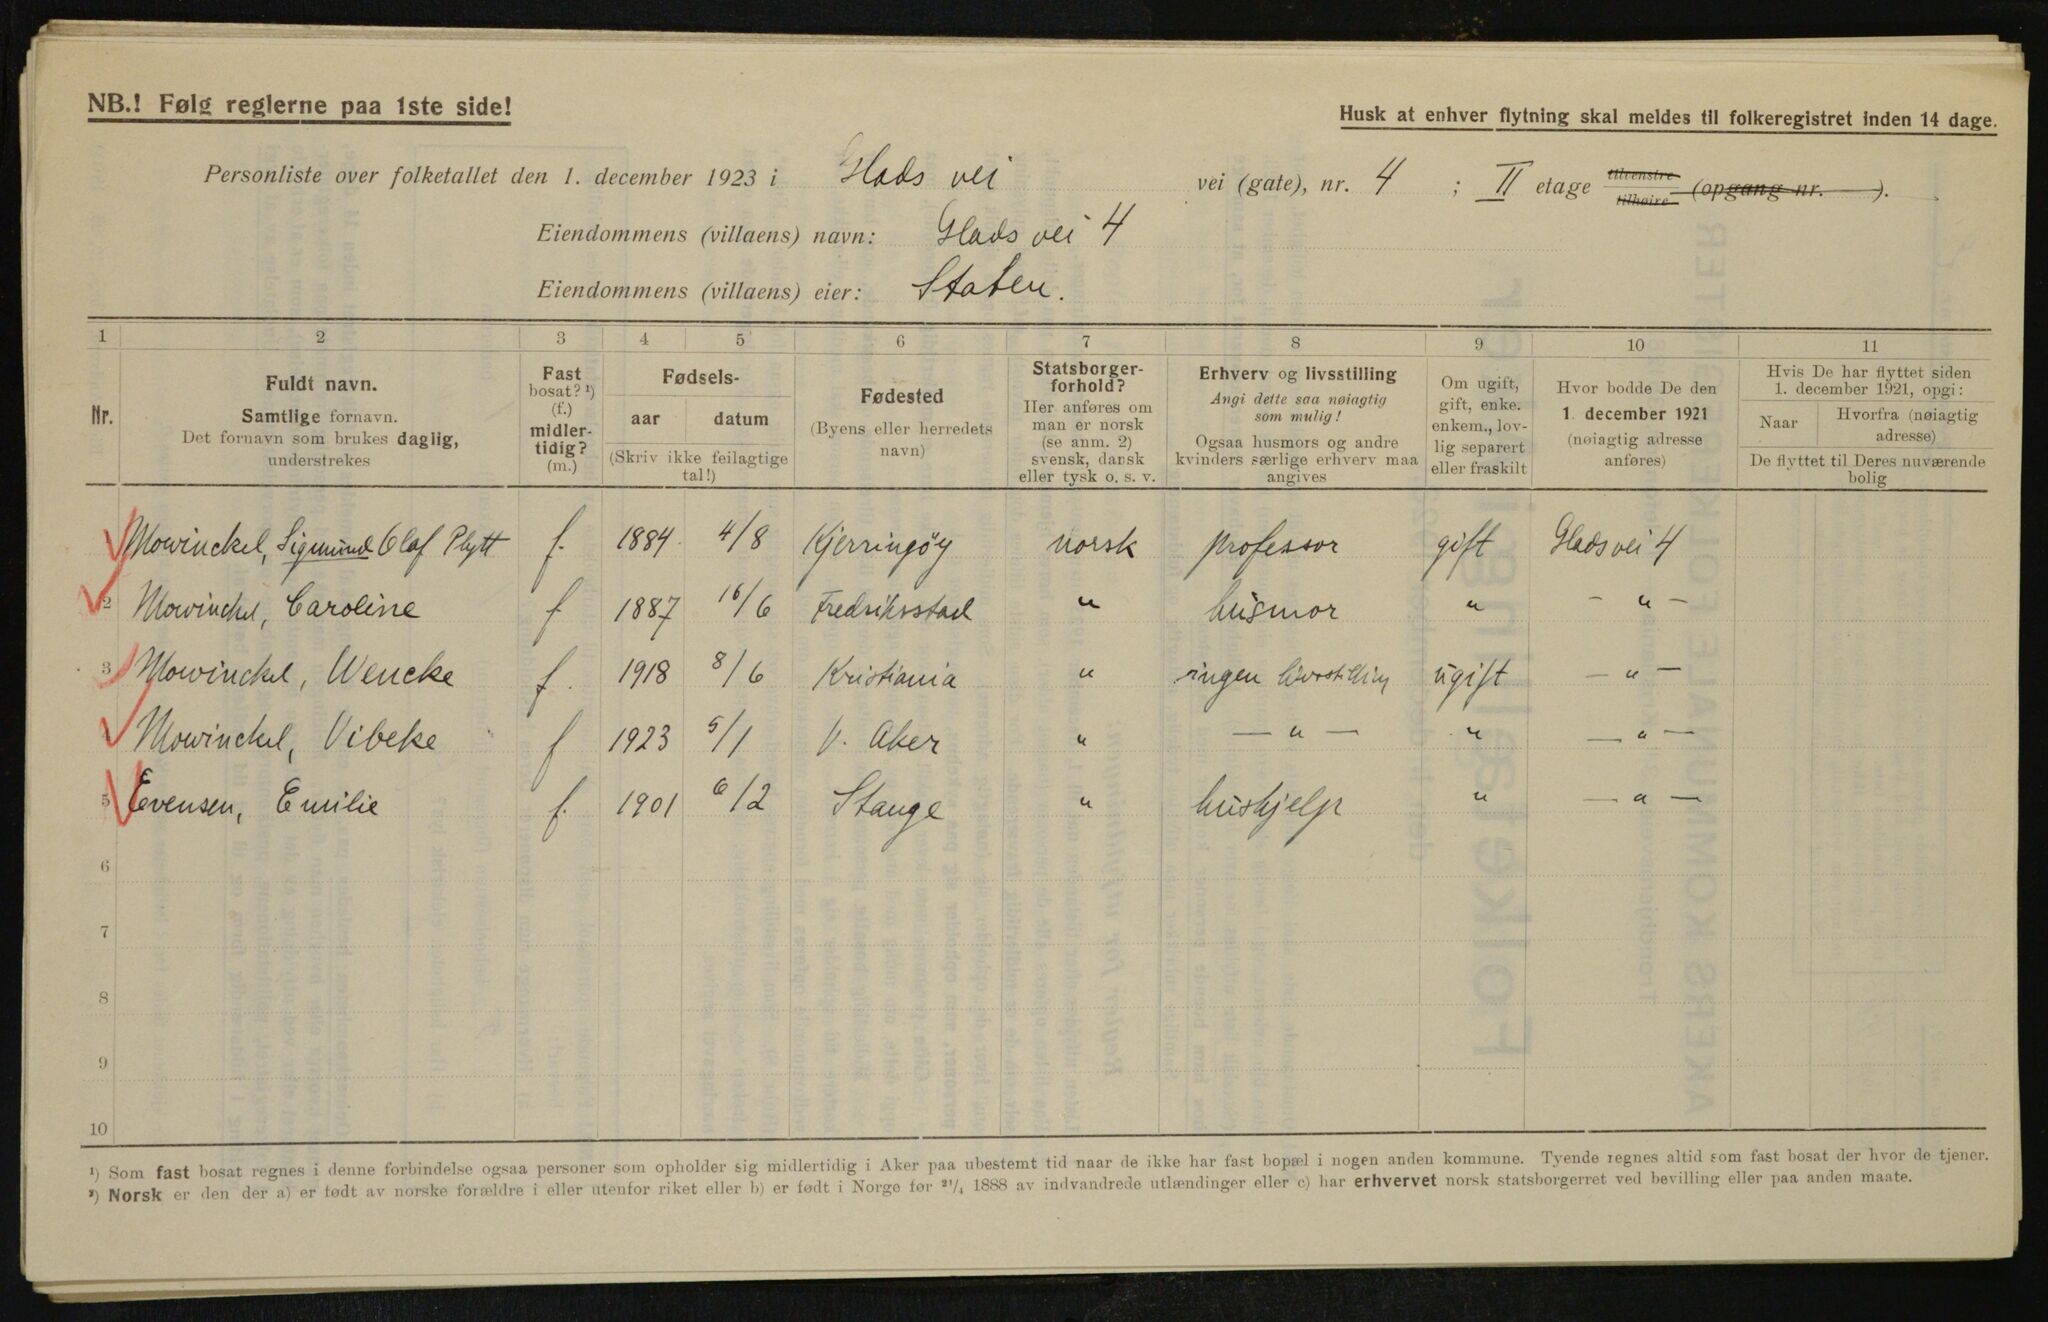 NB.! Følg reglerne paa 1ste side!
Husk at enhver flytning skal meldes til folkeregistret inden 14 dage.
Personliste over folketallet den 1. december 1923 i Glads vei vei (gate), nr. 4 ; II etage tilvenstre tilhøire (opgang nr. ).
Eiendommens (villaens) navn: Glads vei 4
Eiendommens (villaens) eier: Staten.
1 2 3 4 5 6 7 8 9 10 11
Nr.
Fuldt navn.
Samtlige fornavn.
Det fornavn som brukes daglig,
understrekes
Fast
bosat? ¹)
(f.)
midler-
tidig?
(m.)
Fødsels-
aar datum
(Skriv ikke feilagtige
tal!)
Fødested
(Byens eller herredets
navn)
Statsborger-
forhold?
Her anføres om
man er norsk
(se anm. 2)
svensk, dansk
eller tysk o. s. v.
Erhverv og livsstilling
Angi dette saa nøiagtig
som mulig!
Ogsaa husmors og andre
kvinders særlige erhverv maa
angives
Om ugift,
gift, enke.
enkem., lov-
lig separert
eller fraskilt
Hvor bodde De den
1. december 1921
(nøiagtig adresse
anføres)
Hvis De har flyttet siden
1. december 1921, opgi:
Naar Hvorfra (nøiagtig
adresse)
De flyttet til Deres nuværende
bolig
Mowinckel, Sigmund Olaf Plytt f. 1884 4/8 Kjerringøy norsk professor gift Glads vei 4
2 Mowinckel, Caroline f 1887 16/6 Fredriksstad " husmor " – " –
3 Mowinckel, Wencke f. 1918 8/6 Kristiania " ingen livsstilling ugift – " –
Mowinckel, Vibeke f 1923 5/1 V. Aker " – " – " – " –
5 Evensen, Emilie f. 1901 6/2 Stange " hushjelp " – " –
6
7
8
9
10
¹) Som fast bosat regnes i denne forbindelse ogsaa personer som opholder sig midlertidig i Aker paa ubestemt tid naar de ikke har fast bopæl i nogen anden kommune. Tyende regnes altid som fast bosat der hvor de tjener.
²) Norsk er den der a) er født av norske forældre i eller utenfor riket eller b) er født i Norge før ²¹/₄ 1888 av indvandrede utlændinger eller c) har erhvervet norsk statsborgerret ved bevilling eller paa anden maate.